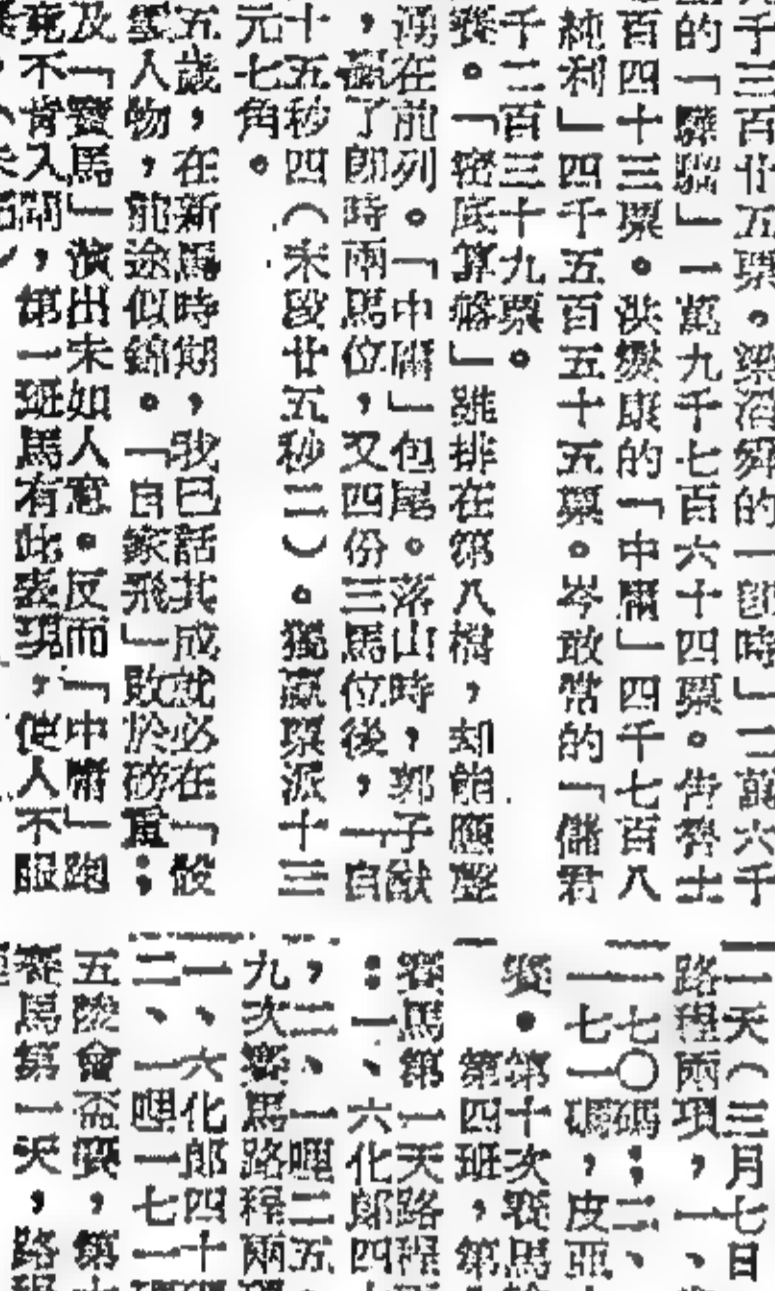 千三百廿五票。梁滔舜的「即時」二萬六千
的「驊騮」一萬九千七百六十四票。告魯士
百四十三票。洪燮康的「中庸」四千七百八
純利」四千五百五十五票。岑敢常的「儲君
千二百三十九票。
賽。「密底算盤」雖排在第八檔，却能應聲
湧在前列。「中庸」包尾。落山時，郭子猷
，贏了即時兩馬位，又四份三馬位後，「自
十五秒四（末段廿五秒二）。獨贏票派十三
元七角。
五歲，在新馬時期，我已話其成就必在「設
人物，前途似錦。「自家飛」敗於磅重；
及「寶馬」演出未如人意。反而「中庸」跑
竟不肯入閘，第一班馬有此表現，使人不服
二天（三月七日
路程兩項，一、
一七〇碼；二、
一七一碼，皮亞
賽。第十次賽馬
第四班，第
賽馬第一天路程
：一、六化郎四
，二、一哩二五
九次賽馬路程兩
一、六化郎四十
二、一哩一七一
五陵會盃賽，第
賽馬第一天，路程